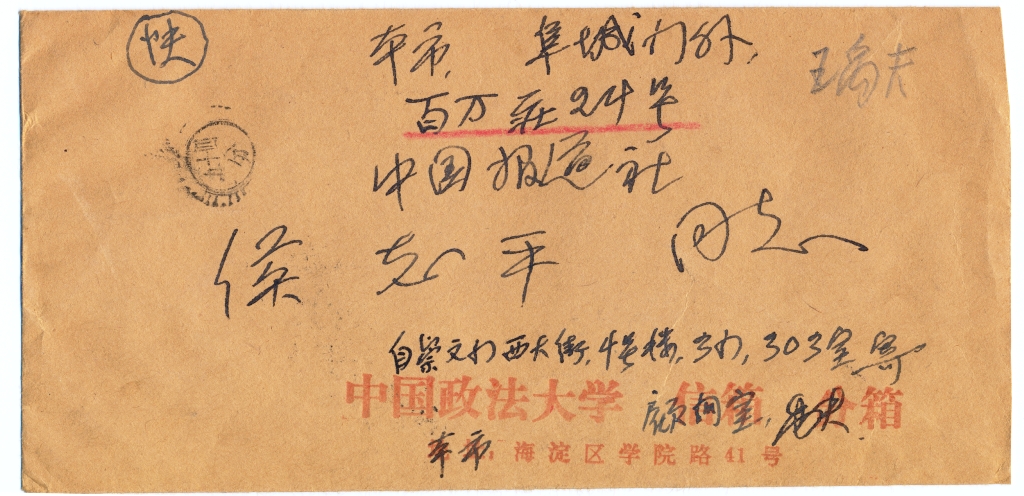 快
本市, 阜城门外,
百万莊24号
中国报道社
侯志平 同志
自崇文门西大街, 4号楼, 3门, 303室寄
中国政法大学 信箱 分箱
本市
: 海淀区学院路41号